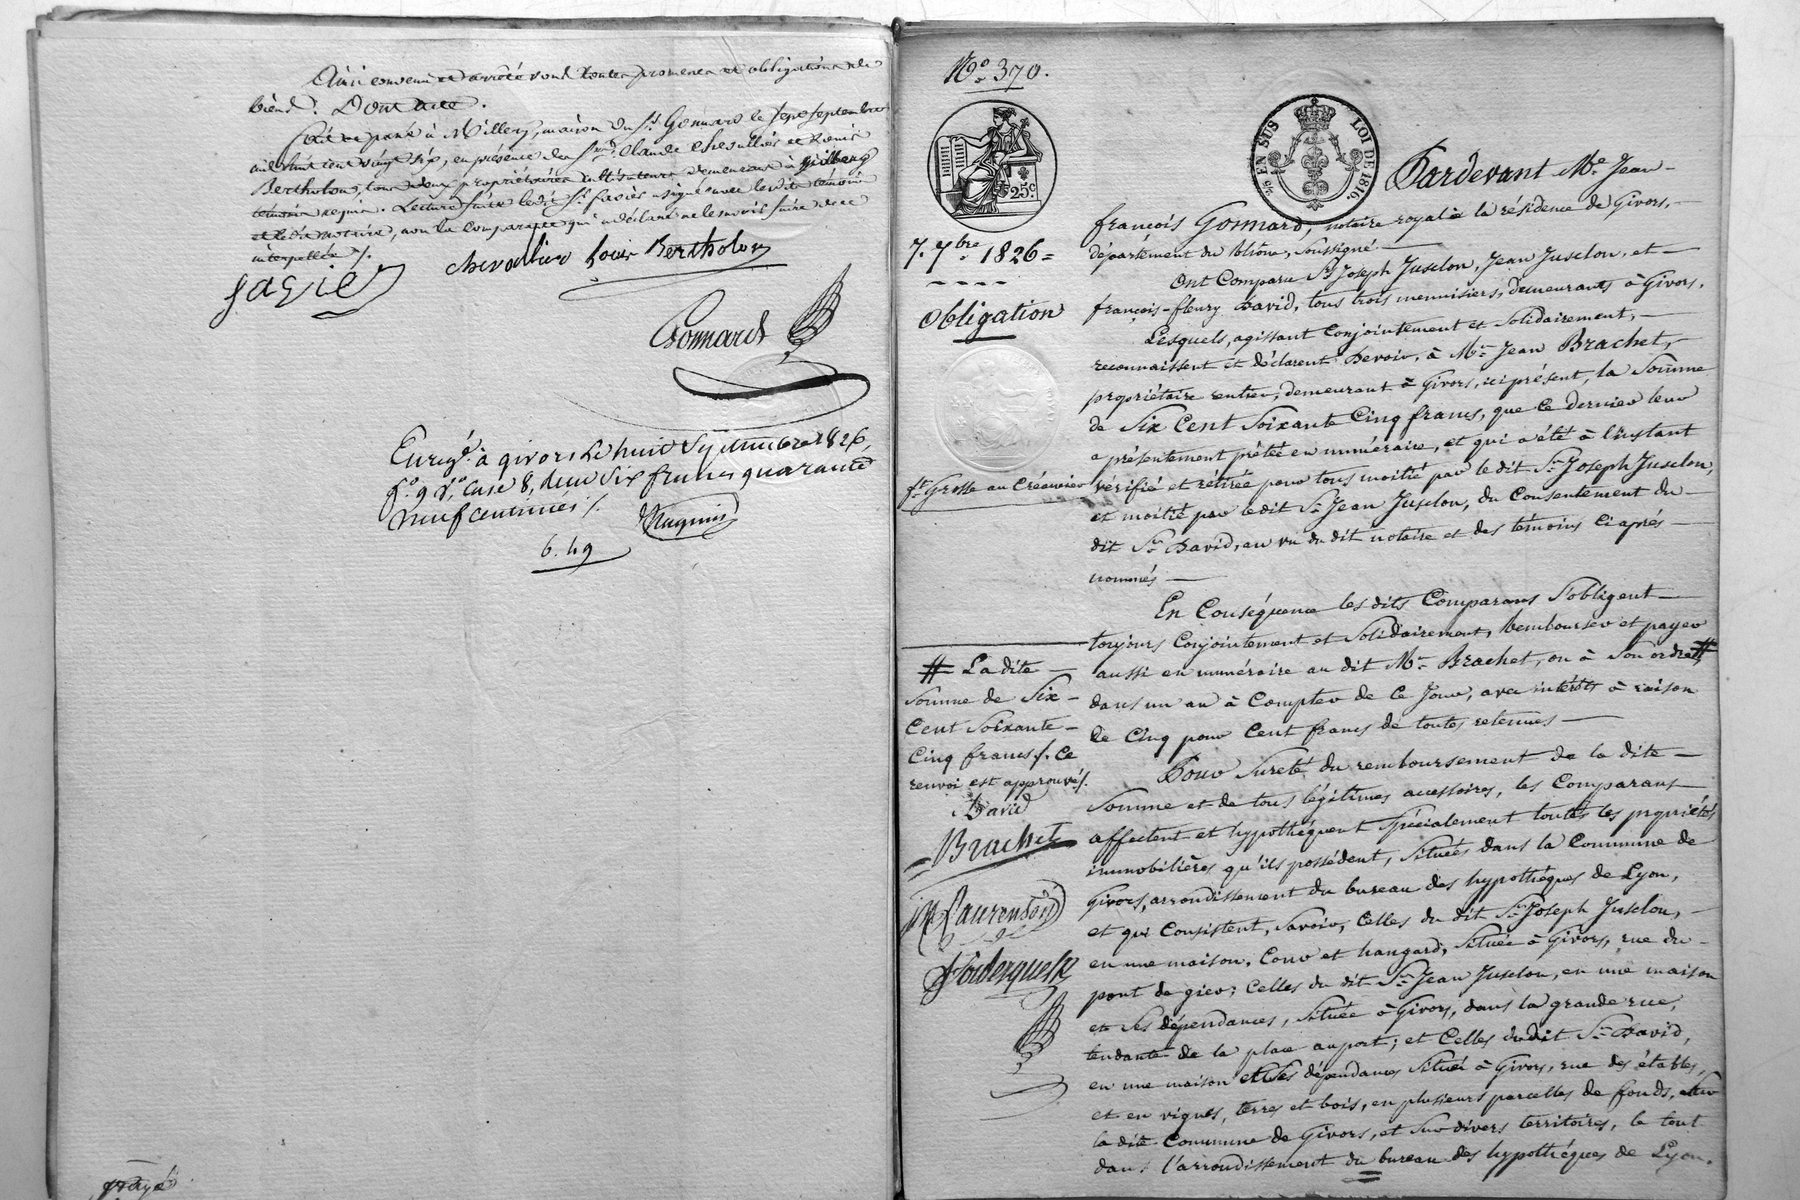 Ainsi convenu et arrêté sous toutes promesses et obligations de
biens. Dont acte.
fait et passé à Millery, maison du Sr. Gonnard le sept septembre
mil huit cent vingt six, en présence des Srs. Claude Chevallier et Louis
Bertholon, tous deux propriétaires cultivateurs demeurant à
témoins requis. Lecture faite ledit Sr. fagies a signé avec lesdits témoins
et le dit notaire, non la comparante qui a déclaré ne le savoir faire de ce
interpellée /.
fagie
chevallier
Louis Bertholon
Gonnard
Enregé. à givors le huit Septembre 1826,
fo. 9 Vo. Case 8, Reçu Six francs quarante
neuf centimes /.
6. 49
payé
No. 370.
25 c.
EN SUS
LOI DE 1816
7. 7bre. 1826 =
Obligation
Pardevant Me. Jean-
françois Gonnard, notaire royal à la résidence de Givors, —
département du Rhône, soussigné —
Ont Comparu Srs. Joseph Juselon, Jean Juselon, et —
françois-fleury David, tous trois menuisiers, demeurants à Givors.
Lesquels, agissant Conjointement et Solidairement, —
reconnaissent et déclarent Devoir, à Mr. Jean Brachet, —
propriétaire rentier, demeurant à Givors, ici présent, la Somme
de Six Cent Soixante Cinq francs, que Ce dernier leur
a présentement prêtée en numéraire, et qui a été à l'instant
ft. Grosse au Créancier
vérifié et retirée pour tous moitié par le dit Sr. Joseph Juselon,
et moitié par le dit Sr. Jean Juselon, du Consentement du —
dit Sr. David, au vu du dit notaire et des témoins Ci après —
nommés —
En Conséquence les dits Comparans S'obligent —
toujours Conjointement et Solidairement, Rembourser et payer
aussi en numéraire au dit Mr. Brachet, ou à Son ordre, #
dans un an à Compter de Ce Jour, avec intérêts à raison
de Cinq pour Cent francs de toutes retenues —
# La dite —
Somme de Six —
Cent Soixante —
Cinq francs /. Ce
renvoi est approuvé /.
David
Brachet
Pour Sureté du remboursement de la dite —
Somme et de tous légitimes accessoires, les Comparans
affectent et hypothéquent Spécialement toutes les propriétés
immobilières qu'ils possédent, Situées dans la Commune de
Givors, arrondissement du bureau des hypothéques de Lyon,
et qui Consistent, Savoir, Celles du dit Sr. Joseph Juselon, —
en une maison, Cour et hangard, Située à Givors, rue du —
pont de gier; Celles du dit Sr. Jean Juselon, en une maison
et Ses dépendances, Située à Givors, dans la grande rue,
tendante de la place au port; et Celles du dit Sr. David,
en une maison et Ses dépendances Situé à Givors, rue des étables,
et en vignes, terres et bois, en plusieurs parcelles de fonds, Sur
la dite Commune de Givors, et Sur divers territoires, le tout
dans l'arrondissement du bureau des hypothéques de Lyon.